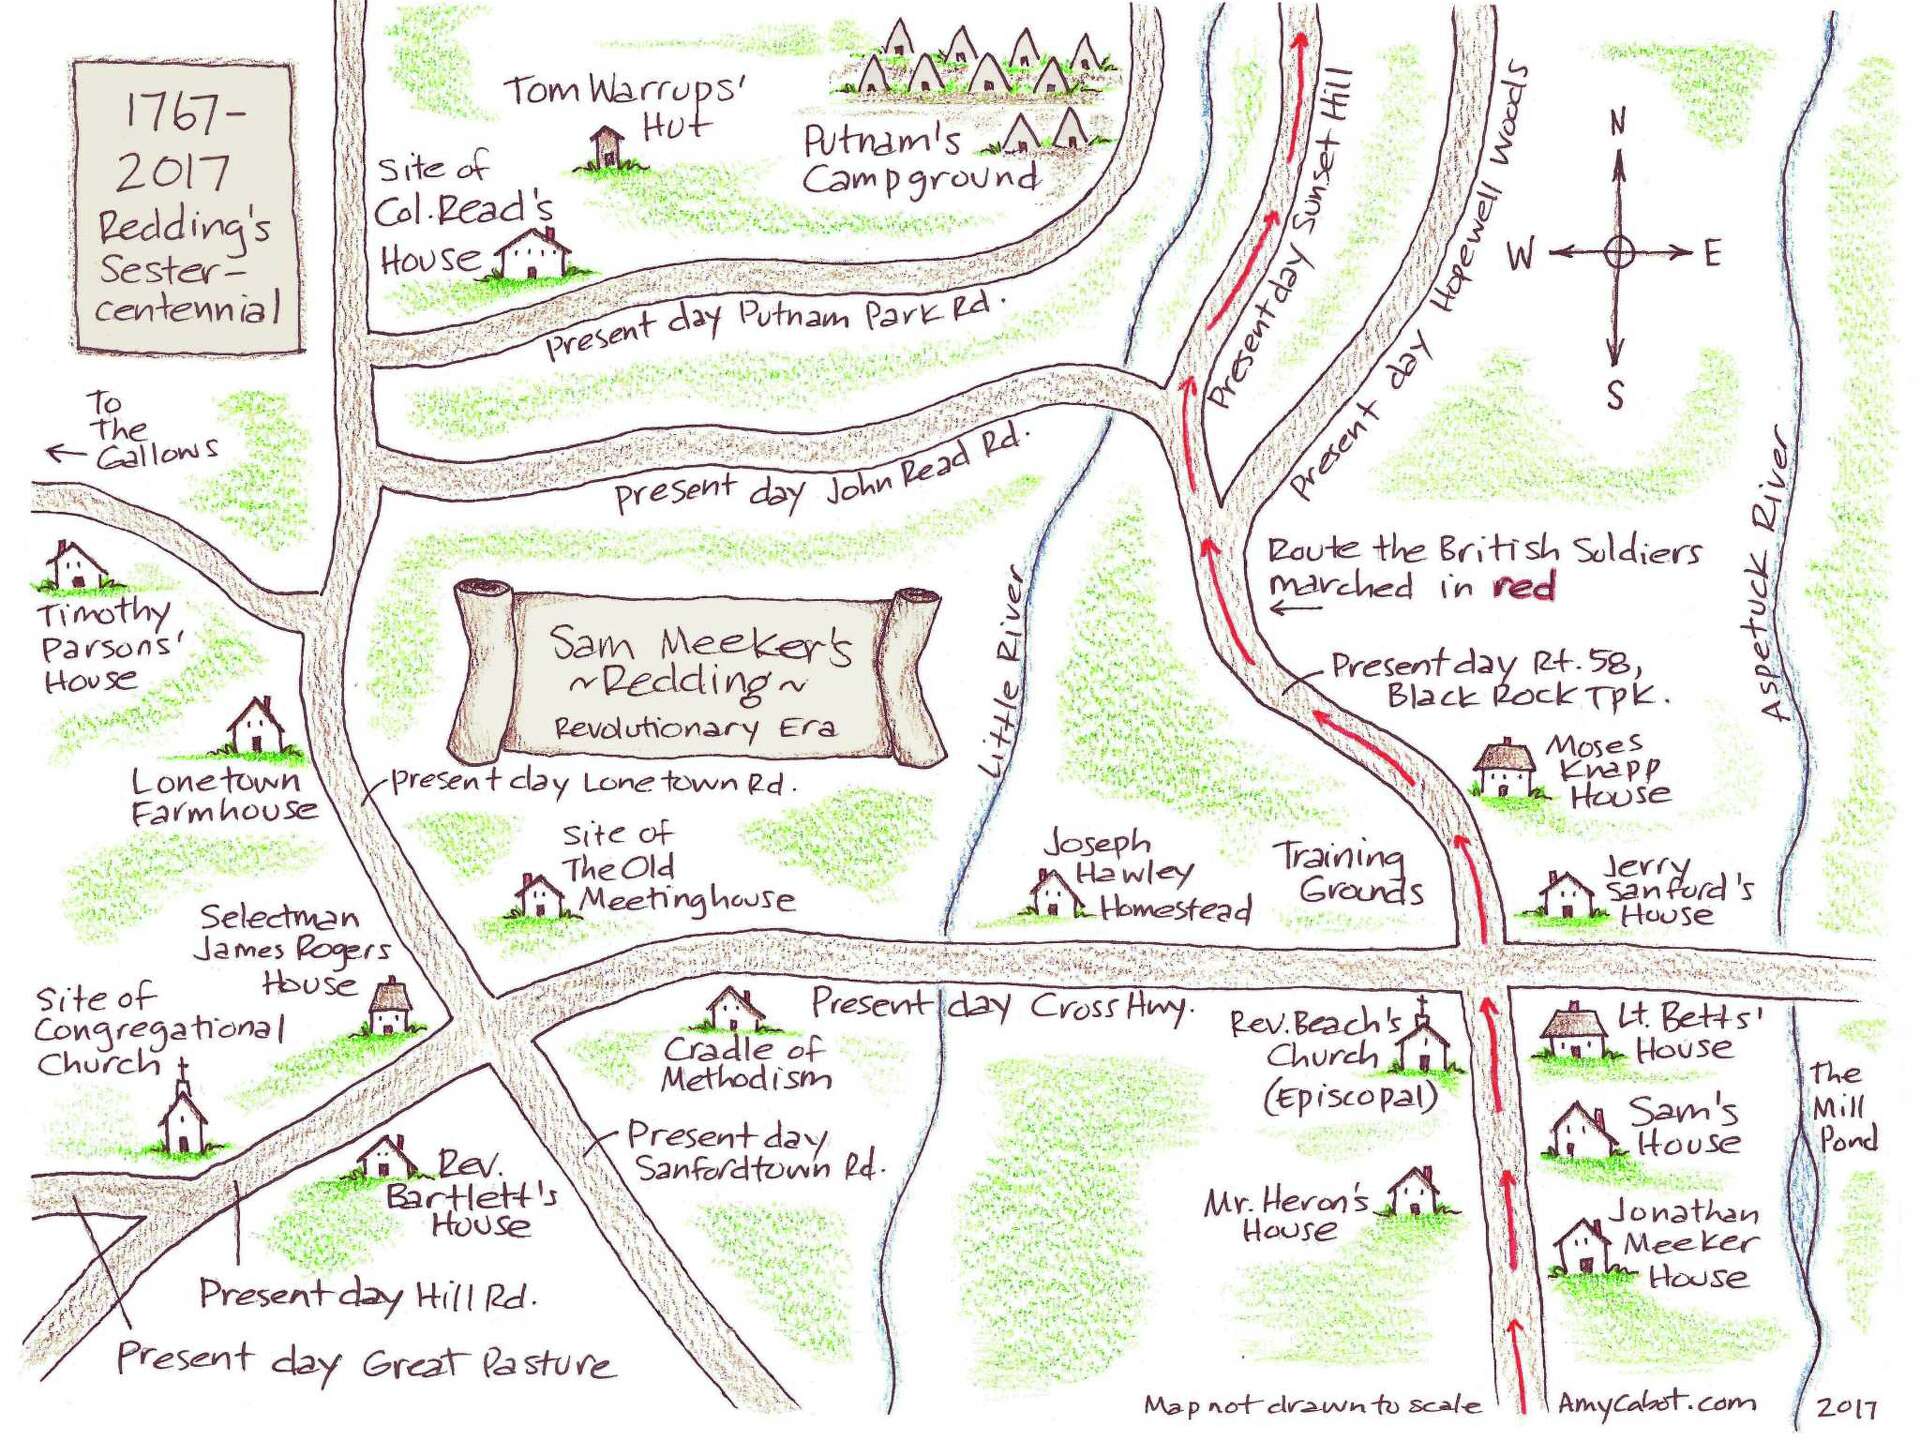 1767-
2017
Redding's
Sester-
centennial
Tom Warrups'
Hut
Site of
Col. Read's
House
Putnam's
Campground
Present day Putnam Park Rd.
Present day Sunset Hill
Present day Hopewell Woods
N
W
E
S
To
The
Gallows
Present day John Read Rd.
Timothy
Parsons'
House
Sam Meeker's
~Redding~
Revolutionary Era
Little River
Route the British Soldiers
marched in red
Present day Rt. 58,
Black Rock Tpk.
Aspetuck River
Lonetown
Farmhouse
Present day Lonetown Rd.
Site of
The Old
Meetinghouse
Joseph
Hawley
Homestead
Training
Grounds
Moses
Knapp
House
Jerry
Sanford's
House
Selectman
James Rogers
House
Site of
Congregational
Church
Present day Cross Hwy.
Cradle of
Methodism
Rev. Beach's
Church
(Episcopal)
Lt. Betts'
House
The
Mill
Pond
Sam's
House
Rev.
Bartlett's
House
Present day
Sanfordtown Rd.
Mr. Heron's
House
Jonathan
Meeker
House
Present day Hill Rd.
Present day Great Pasture
Map not drawn to scale
AmyCabot.com
2017